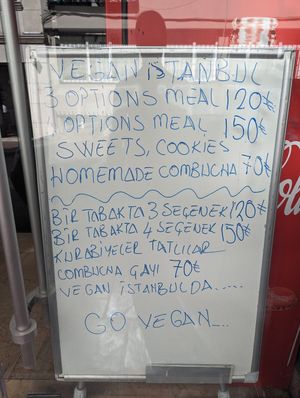 VEGAN İSTANBUL
3 OPTIONS MEAL 120₺
4 OPTIONS MEAL 150₺
SWEETS, COOKIES
HOMEMADE COMBUCHA 70₺
BİR TABAKTA 3 SEÇENEK 120₺
BİR TABAKTA 4 SEÇENEK 150₺
KURABİYELER TATLILAR
COMBUCHA ÇAYI 70₺
VEGAN İSTANBULDA.....
GO VEGAN...